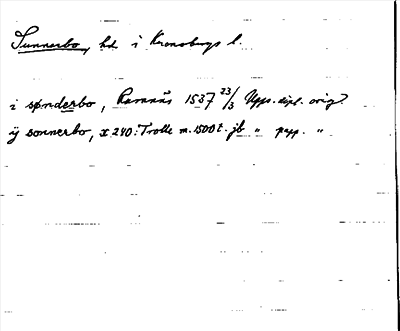 Sunnerbo, hd i Kronobergs l.
i sønderbo, Ramnås 1537 23/3 Upps. dipl. orig.
ÿ sonnerbo, x 240: Trolle m. 1500 t. jb " papp. "